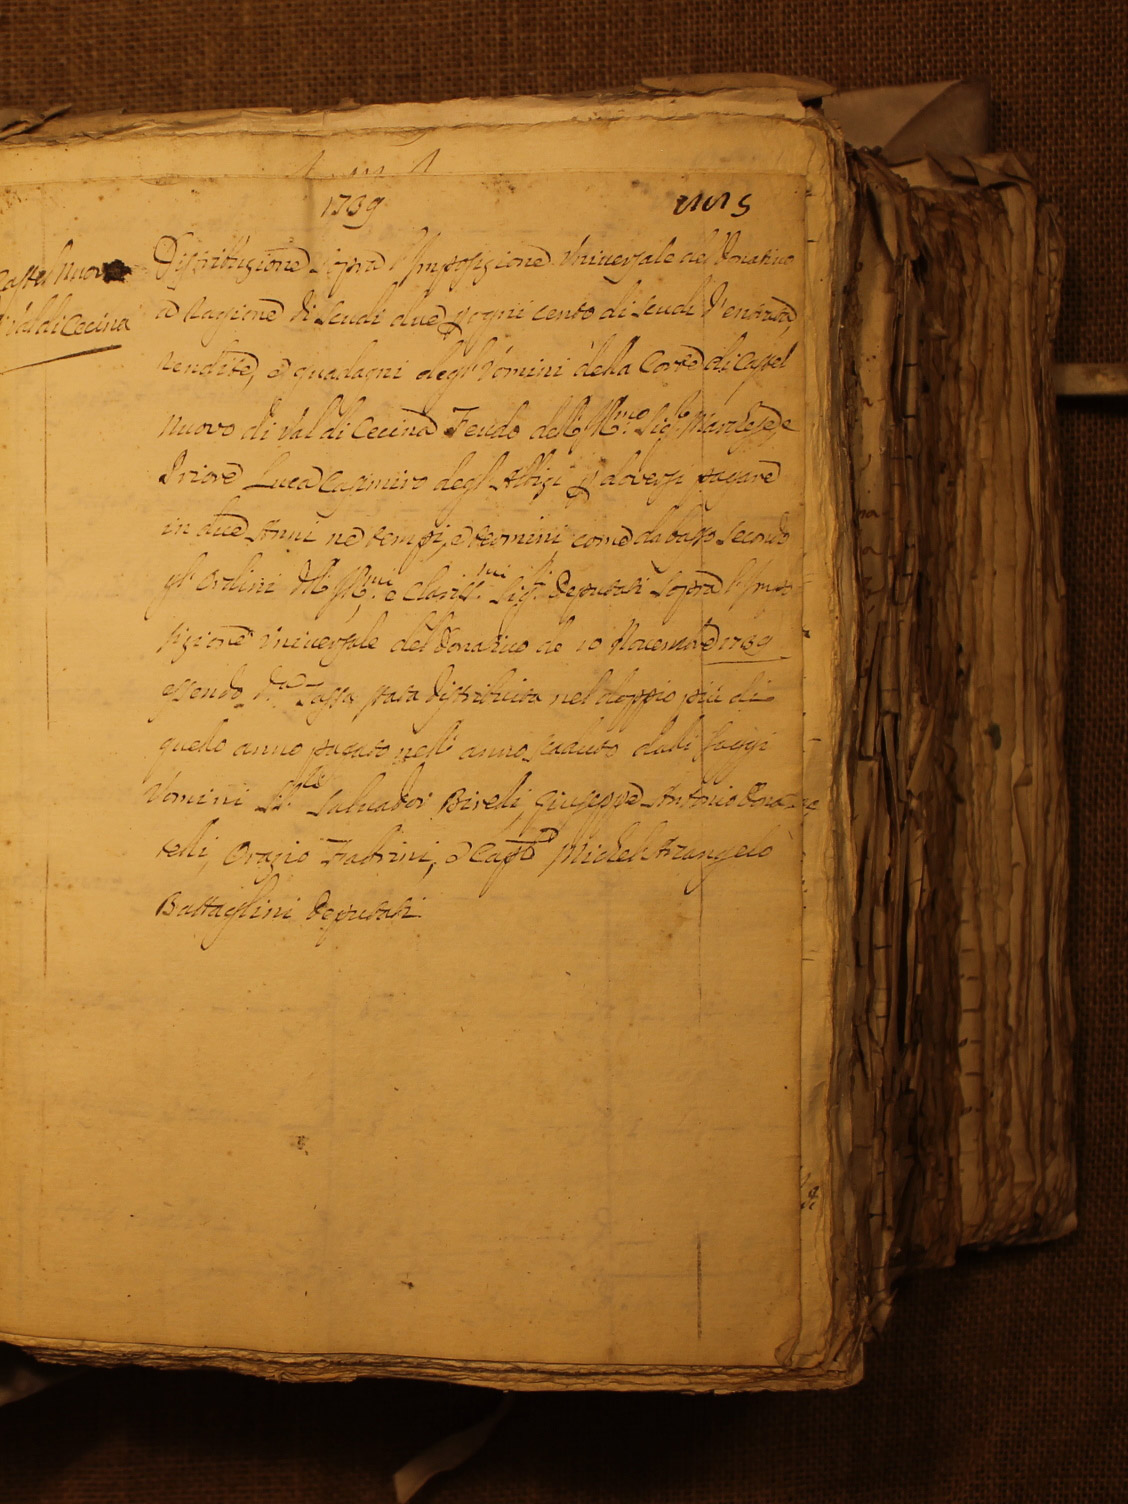 1739
Castel nuovo
Val di Cecina
Distribuzione Sopra l'Imposizione Vniversale del Donativo
a Ragione di Scudi due p ogni cento di Scudi d'entrata,
rendite, e guadagni degl'Vomini della Corte di Castel
Nuovo di Val di Cecina Feudo dell'Ill.mo Sig.re Marchese e
Priore Luca Casimiro degl'Albizi p doversi pagare
in due Anni ne tempi, e termini come da basso secondo
gl'Ordini dell'Ill.mi e Clariss.mi Sig.ri Deputati Sopra l'Impo
sizione Vniversale del Donativo de 10 Novembre 1739
essendo d.a Tassa stata distribuita nel doppio più di
quello anno pagato nell'anno scaduto dalli saggi
Vomini Salvador Bireli, Giuseppe Antonio Dona
telli, Orazio Fabrini, e Cap.o Michel Arcangelo
Battaglini Deputati.